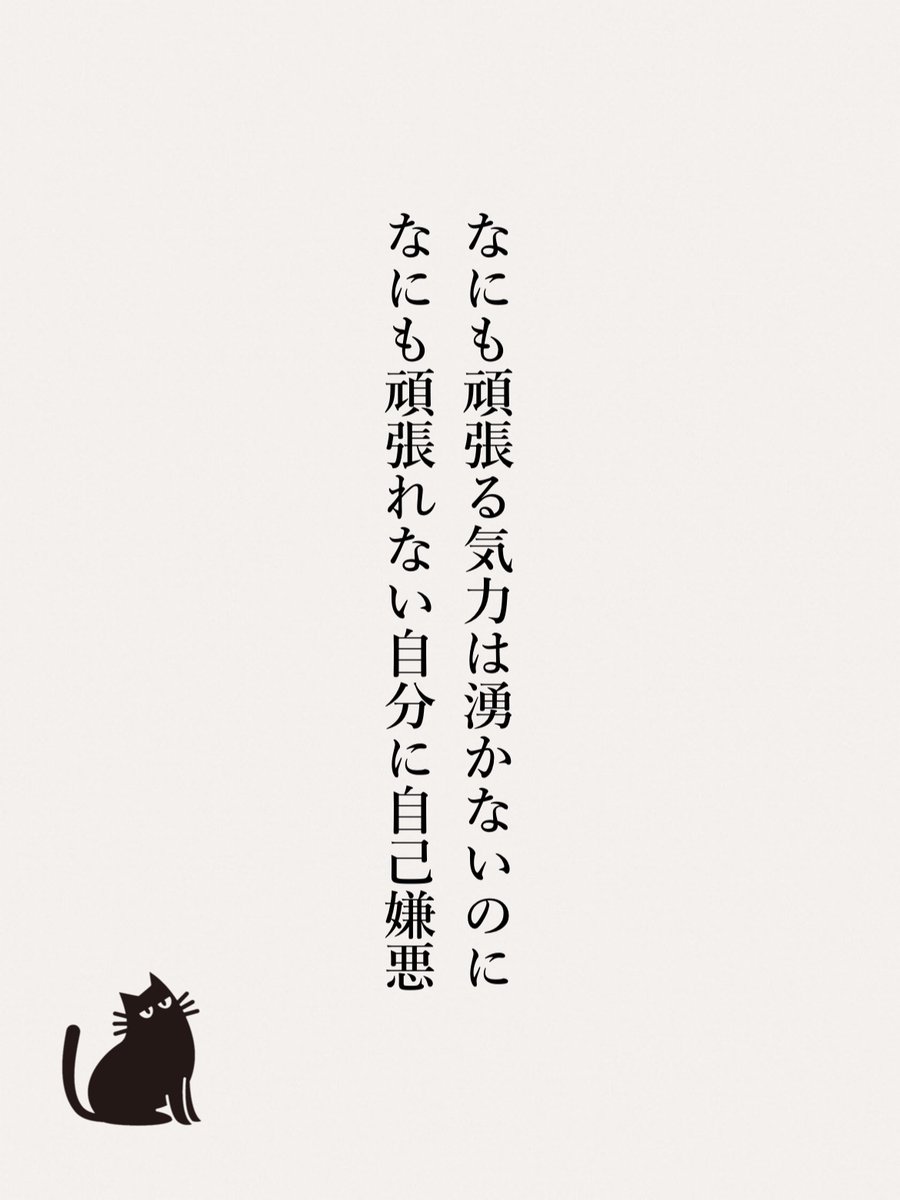 なにも頑張る気力は湧かないのに
なにも頑張れない自分に自己嫌悪